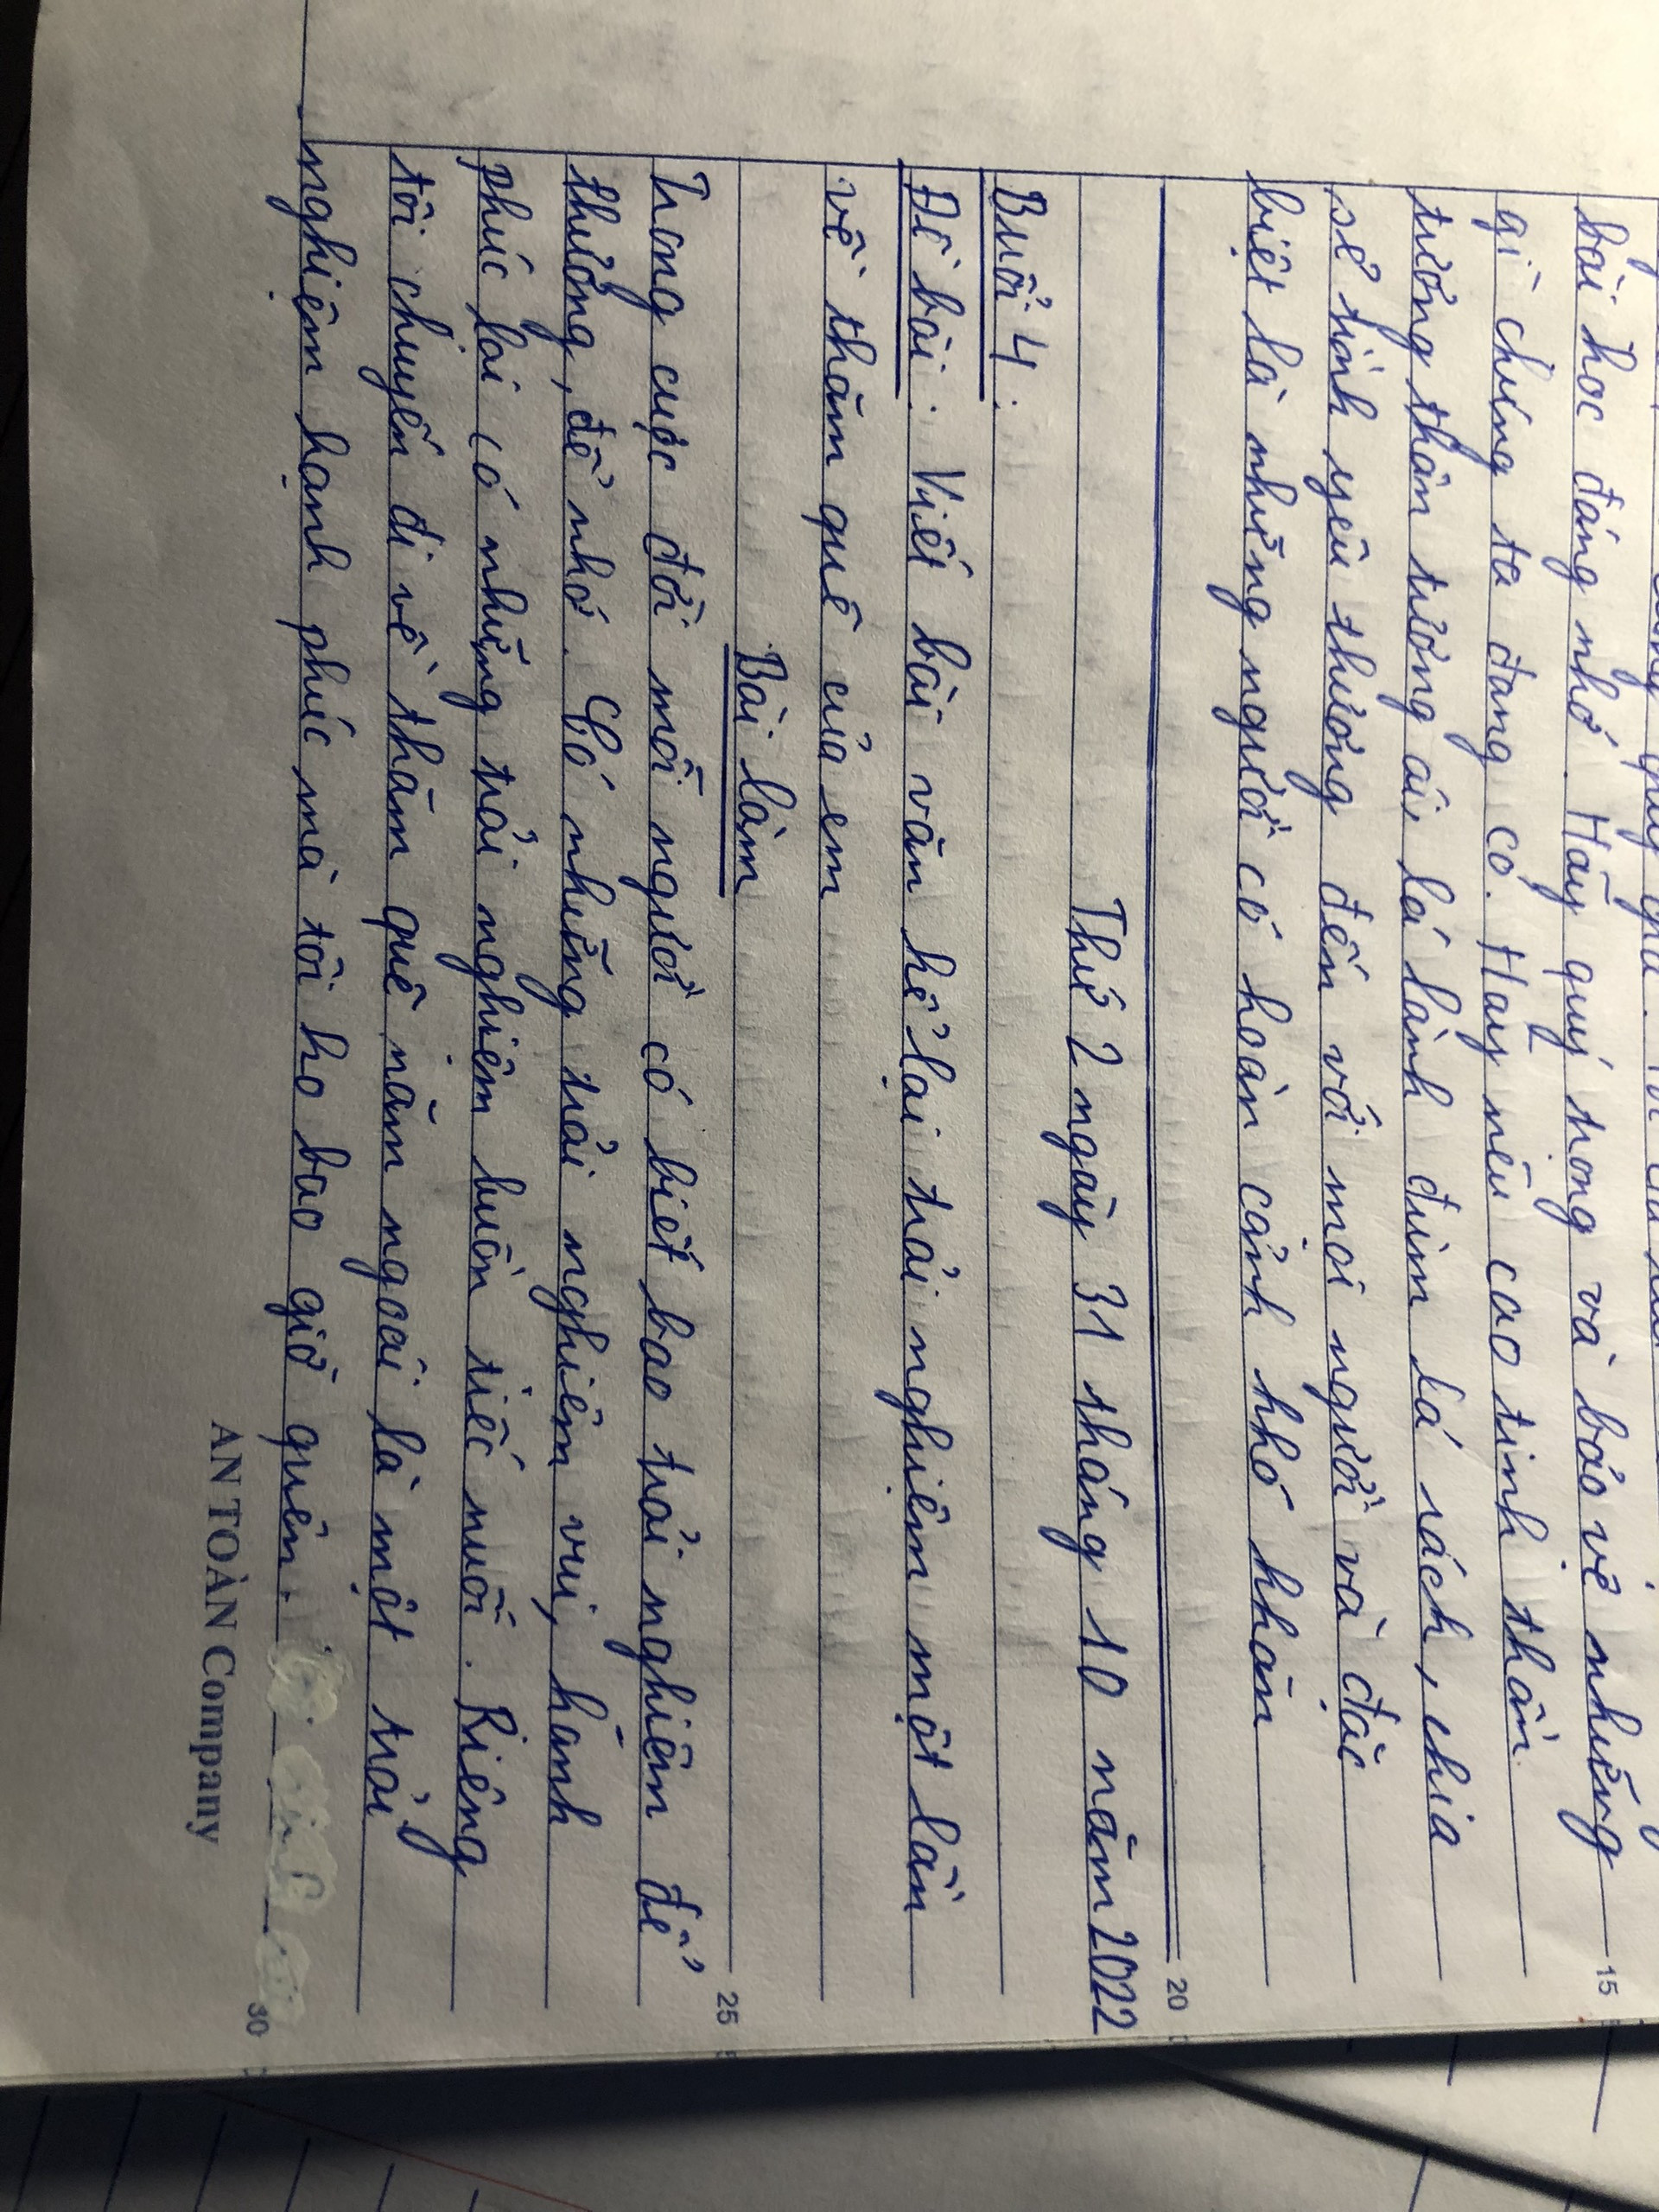 bài học đáng nhớ. Hãy quý trọng và bảo vệ những
gì chúng ta đang có. Hãy nêu cao tinh thần
tương thân tương ái, lá lành đùm lá rách, chia
sẻ tình yêu thương đến với mọi người và đặc
biệt là những người có hoàn cảnh khó khăn
20
Thứ 2 ngày 31 tháng 10 năm 2022
Buổi 4:
Đề bài: Viết bài văn kể lại trải nghiệm một lần
về thăm quê của em
Bài làm
25
Trong cuộc đời mỗi người có biết bao trải nghiệm để
thương, để nhớ. Có những trải nghiệm vui, hành
phúc lại có những trải nghiệm buồn tiếc nuối. Riêng
tôi chuyến đi về thăm quê năm ngoái là một trải
nghiệm hạnh phúc mà tôi ko bao giờ quên.
30
AN TOÀN Company
15